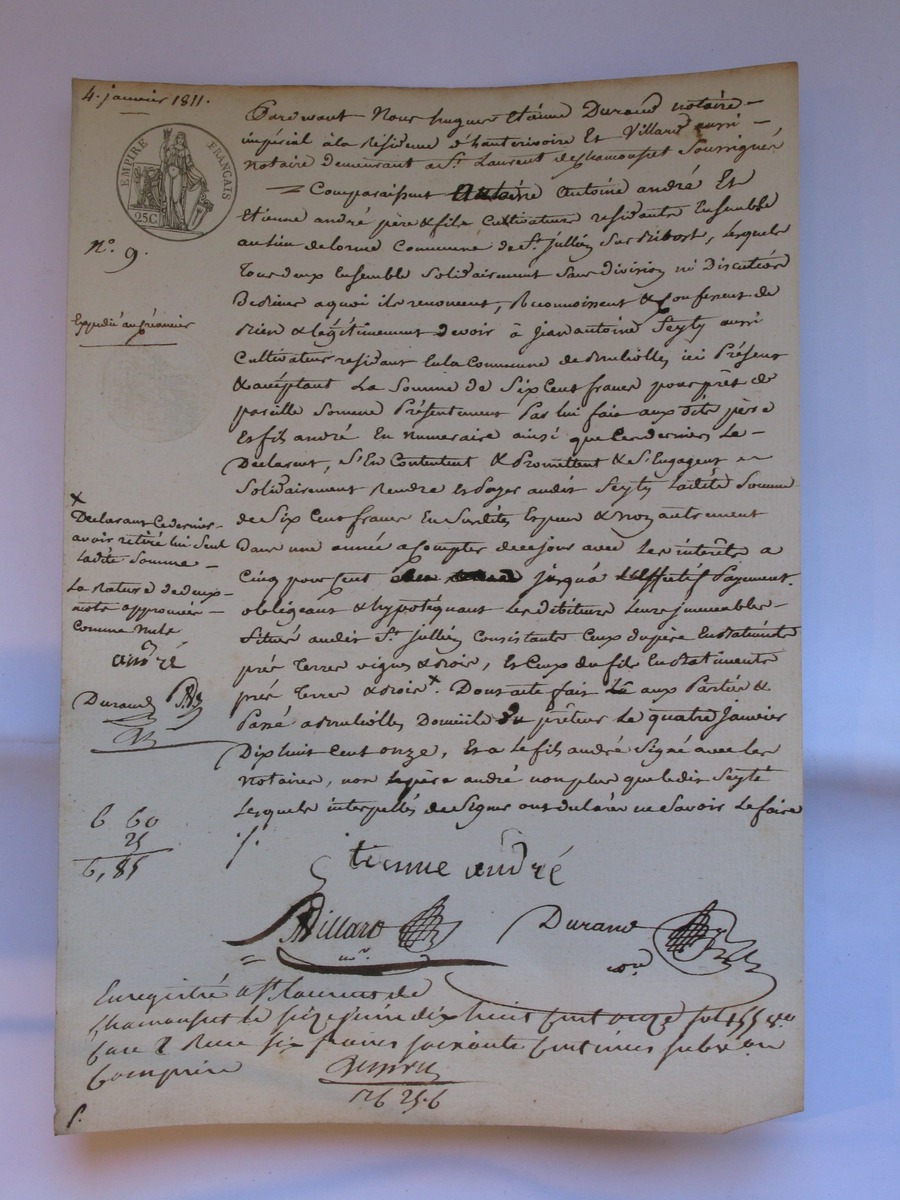 4. janvier 1811.
EMPIRE FRANÇAIS
25C
N.° 9.
Expedié au créancier
Pardevant Nous hugues Etiéne Durand notaire
impérial à la Résidence d'hauterivoire Et Villard aussi
notaire demeurant a St. Laurent de Chamousset Soussignés
= Comparaissent Antoine andré Et
Etienne andré père & fils Cultivateurs residants Ensemble
au lieu de lorme Commune de St. jullien Sur Bibost, lesquels
Tous deux Ensemble Solidairement Sans division ni Discution
De Biens a quoi ils renoncent, Reconnoissent & Confessent de
Bien & légitimement devoir à jean antoine Seyty aussi
Cultivateur residant En la Commune de Brulliolles ici Présent
& acceptant La Somme de Six Cent francs pour prêt de
pareille Somme Présentement Par lui fait aux dits père
Et fils andré En numeraire ainsi que Ces derniers Le
Declarent, S'En Contentent & Promettent & S'Engagent
Solidairement Rendre Et Payer audit Seyty Ladite Somme
de Six Cent francs En Susdites Especes & non autrement
Dans une année a Compter de ce jour avec Les interêts a
Cinq pour Cent jusqu'a L'Effectif Payement.
obligeant & hypotéquant Les débiteurs Leurs immeubles
Situés audit St. jullien Consistants Ceux du père En batiments
prés Terres vignes & bois, Et Ceux du fils En batiments
prés Terres & bois x. Dont acte fait Lu aux Parties &
Passé a Brulliolles Domicile du prêteur Le quatre janvier
Dix huit Cent onze, Et a Le fils andré Signé avec Les
notaires, non Le père andré non plus que Ledit Seyté
Lesquels interpellés de Signer ont declaré ne Savoir Le faire
x
Declarant Ce dernier
avoir retiré lui Seul
Ladite Somme
La Rature de deux
mots approuvée
Comme Nuls
andré
Durand
6 60
25
6,85
Etienne andré
Villard
Durand
Enregistré a St. Laurent de
Chamousset le seize janvier dix huit Cent onze
Case 2 Recu six francs soixante Centimes subvon
Comprise